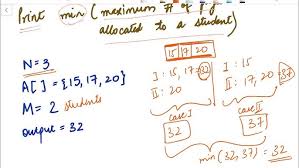 Print min (maximum # of pg
allocated to a student)
N=3
A[] = {15, 17, 20}
M = 2 students
output = 32
15 17 20
I : 15, 17 = 32
II : 20
case I
32
I : 15
II : 17, 20 = 37
case II
37
min (32, 37) = 32